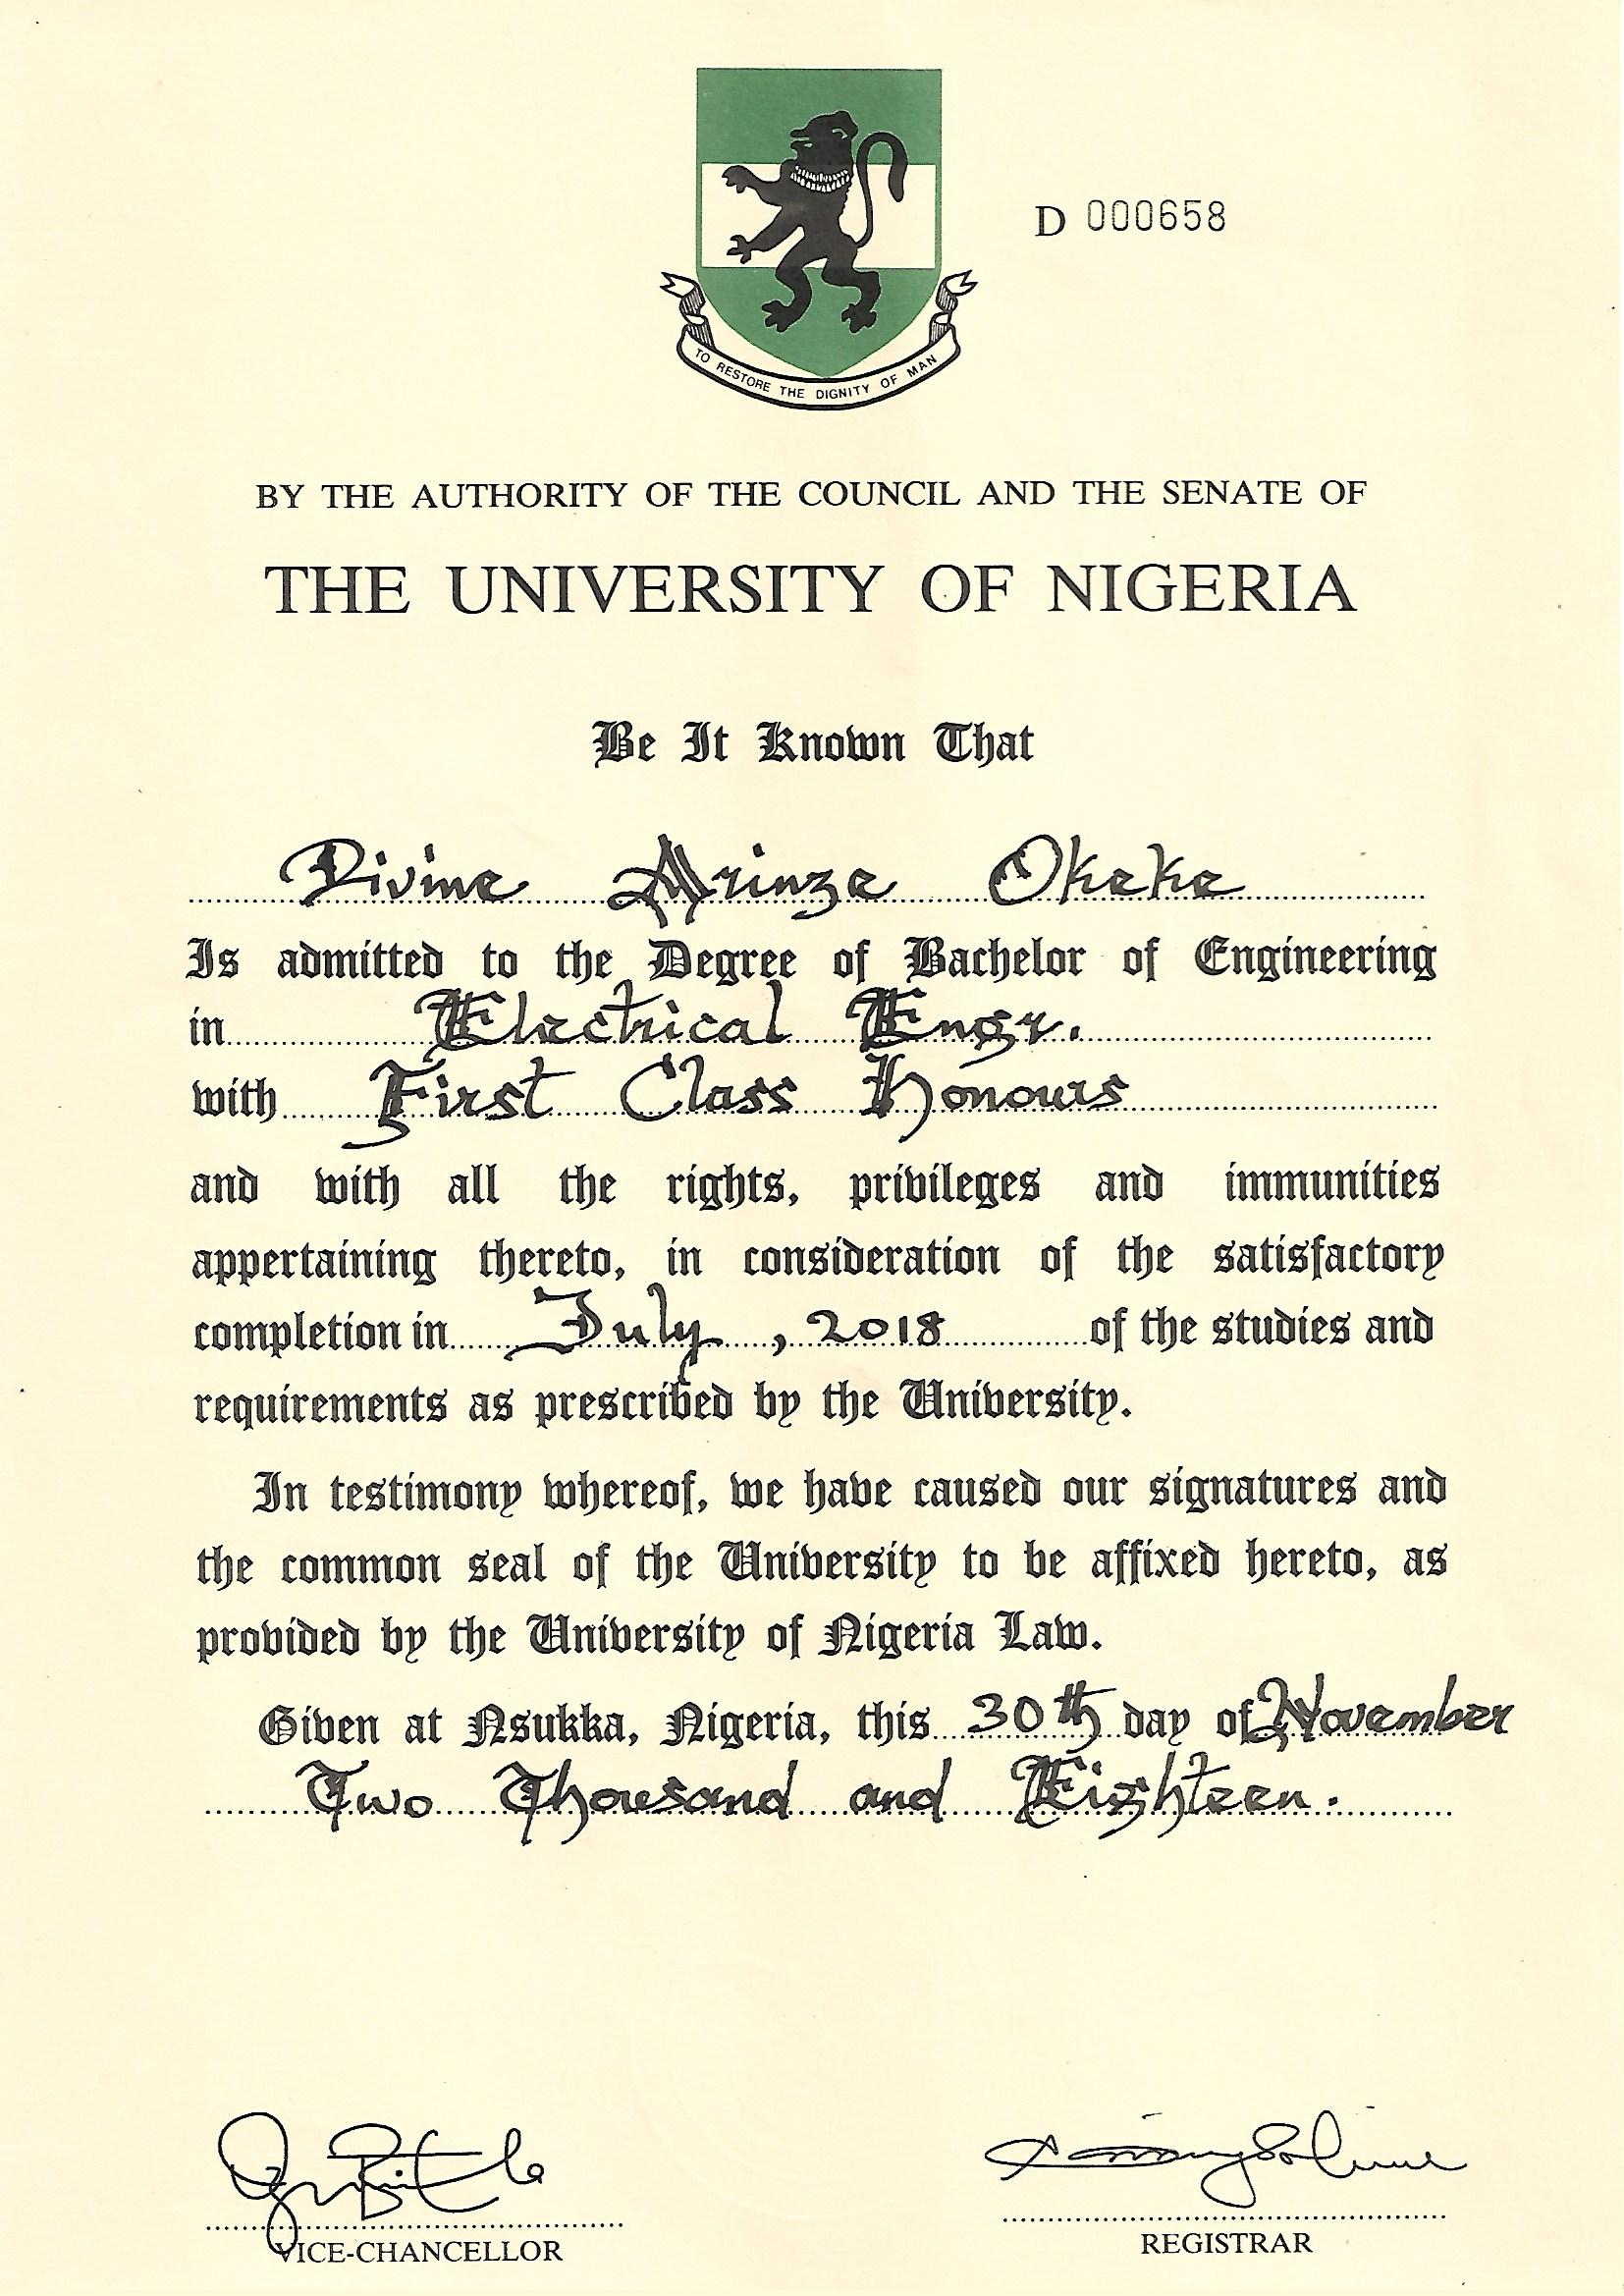 D 000658
TO RESTORE THE DIGNITY OF MAN
BY THE AUTHORITY OF THE COUNCIL AND THE SENATE OF
THE UNIVERSITY OF NIGERIA
Be It Known That
Divine Arinze Okeke
Is admitted to the Degree of Bachelor of Engineering
in Electrical Engr.
with First Class Honours
and with all the rights, privileges and immunities
appertaining thereto, in consideration of the satisfactory
completion in July, 2018 of the studies and
requirements as prescribed by the University.
In testimony whereof, we have caused our signatures and
the common seal of the University to be affixed hereto, as
provided by the University of Nigeria Law.
Given at Nsukka, Nigeria, this 30th day of November
Two Thousand and Eighteen.
VICE-CHANCELLOR
REGISTRAR